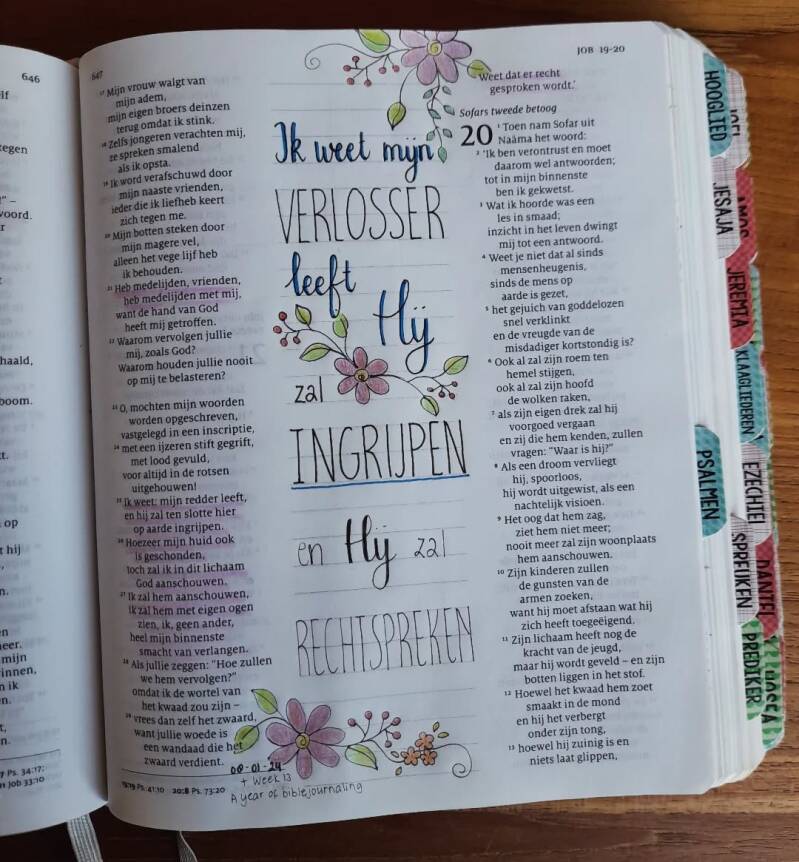 646
lf
tegen
" –
voord.
r
haald,
boom.
t.
op
t hij
n.
en
neer.
mijn
innen,
n ik
en.
t,
n.
7 Ps. 34:17;
Job 33:10
647
17 Mijn vrouw walgt van
mijn adem,
mijn eigen broers deinzen
terug omdat ik stink.
18 Zelfs jongeren verachten mij,
ze spreken smalend
als ik opsta.
19 Ik word verafschuwd door
mijn naaste vrienden,
ieder die ik liefheb keert
zich tegen me.
20 Mijn botten steken door
mijn magere vel,
alleen het vege lijf heb
ik behouden.
21 Heb medelijden, vrienden,
heb medelijden met mij,
want de hand van God
heeft mij getroffen.
22 Waarom vervolgen jullie
mij, zoals God?
Waarom houden jullie nooit
op mij te belasteren?
23 O, mochten mijn woorden
worden opgeschreven,
vastgelegd in een inscriptie,
24 met een ijzeren stift gegrift,
met lood gevuld,
voor altijd in de rotsen
uitgehouwen!
25 Ik weet: mijn redder leeft,
en hij zal ten slotte hier
op aarde ingrijpen.
26 Hoezeer mijn huid ook
is geschonden,
toch zal ik in dit lichaam
God aanschouwen.
27 Ik zal hem aanschouwen,
ik zal hem met eigen ogen
zien, ik, geen ander,
heel mijn binnenste
smacht van verlangen.
28 Als jullie zeggen: "Hoe zullen
we hem vervolgen?"
omdat ik de wortel van
het kwaad zou zijn –
29 vrees dan zelf het zwaard,
want jullie woede is
een wandaad die het
zwaard verdient.
19:19 Ps. 41:10 20:8 Ps. 73:20
Ik weet mijn
VERLOSSER
leeft
Hij
zal
INGRIJPEN
en Hij zal
RECHTSPREKEN
08-01-24
+ Week 13
A year of biblejournaling
JOB 19-20
Weet dat er recht
gesproken wordt.'
Sofars tweede betoog
20 1 Toen nam Sofar uit
Naäma het woord:
2 'Ik ben verontrust en moet
daarom wel antwoorden;
tot in mijn binnenste
ben ik gekwetst.
3 Wat ik hoorde was een
les in smaad;
inzicht in het leven dwingt
mij tot een antwoord.
4 Weet je niet dat al sinds
mensenheugenis,
sinds de mens op
aarde is gezet,
5 het gejuich van goddelozen
snel verklinkt
en de vreugde van de
misdadiger kortstondig is?
6 Ook al zal zijn roem ten
hemel stijgen,
ook al zal zijn hoofd
de wolken raken,
7 als zijn eigen drek zal hij
voorgoed vergaan
en zij die hem kenden, zullen
vragen: "Waar is hij?"
8 Als een droom vervliegt
hij, spoorloos,
hij wordt uitgewist, als een
nachtelijk visioen.
9 Het oog dat hem zag,
ziet hem niet meer;
nooit meer zal zijn woonplaats
hem aanschouwen.
10 Zijn kinderen zullen
de gunsten van de
armen zoeken,
want hij moet afstaan wat hij
zich heeft toegeëigend.
11 Zijn lichaam heeft nog de
kracht van de jeugd,
maar hij wordt geveld – en zijn
botten liggen in het stof.
12 Hoewel het kwaad hem zoet
smaakt in de mond
en hij het verbergt
onder zijn tong,
13 hoewel hij zuinig is en
niets laat glippen,
HOOGLIED
JESAJA
JEREMIA
KLAAGLIEDEREN
PSALMEN
EZECHIEL
SPREUKEN
DANIEL
PREDIKER
HOSEA
JOEL
AMOS